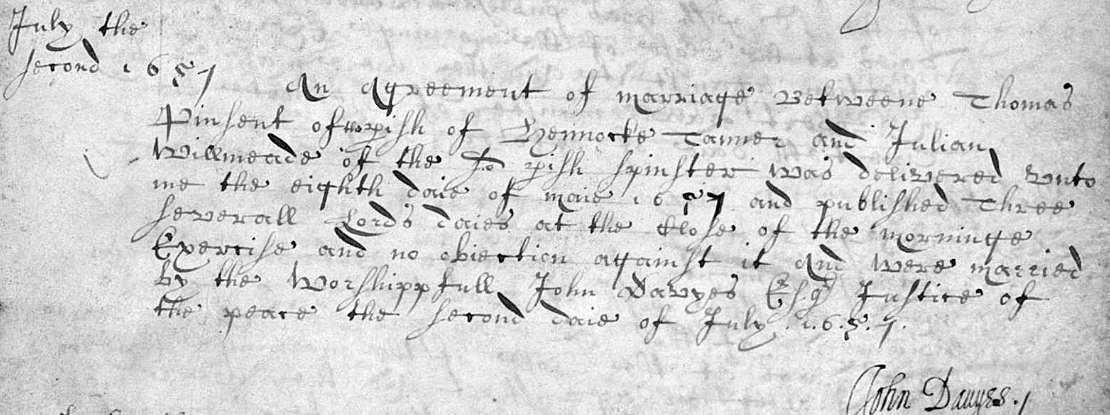 July the
second 1657
An Agreement of marriage betweene Thomas
Pinsent of ye pish of Hennocke Tanner and Julian
Willmeade of the sd pish spinster was delivered unto
me the eighth daie of maie 1657 and published three
severall Lords daies at the close of the morninge
Exercise and no obiection against it And were married
by the Worshippfull John Davyes Esqr Justice of
the peace the second daie of July . 1.6.5.7.
John Dauyes .